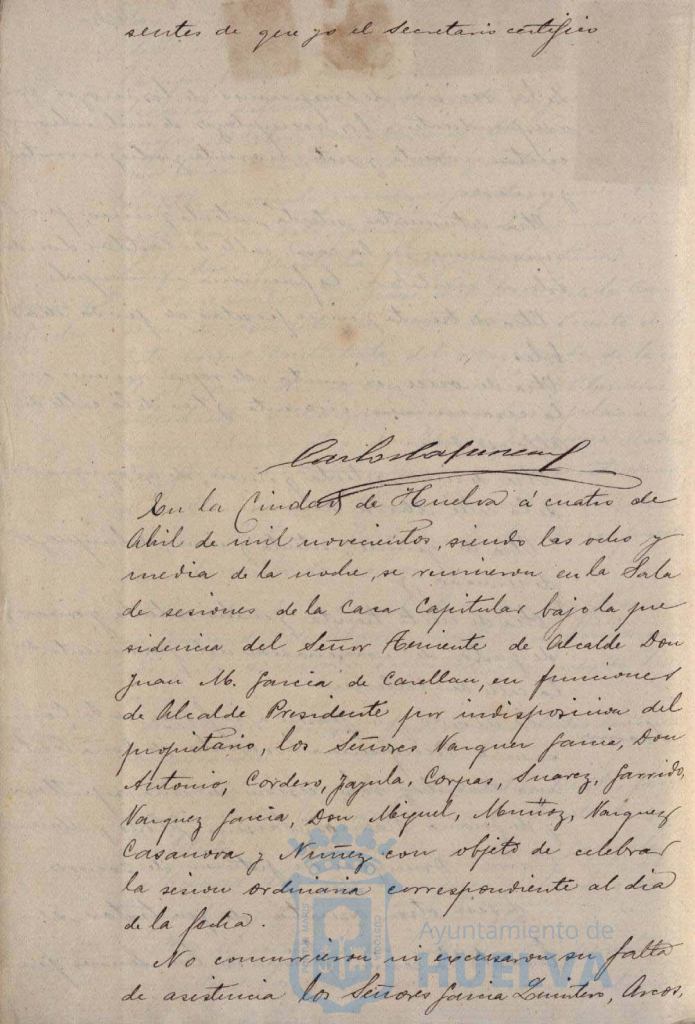 sentes de que yo el Secretario certifico
Carlos
En la Ciudad de Huelva á cuatro de
Abril de mil novecientos, siendo las ocho y
media de la noche, se reunieron en la Sala
de sesiones de la Casa Capitular bajo la pre
sidencia del Señor Teniente de Alcalde Don
Juan M. Garcia de Carellan, en funciones
de Alcalde Presidente por indisposicion del
propietario, los Señores Vazquez Garcia, Don
Antonio, Cordero, Jagula, Corpas, Suarez, Garrido,
Vazquez Garcia, Don Miguel, Muñoz, Vazquez
Casanova y Nuñez con objeto de celebrar
la sesion ordinaria correspondiente al dia
de la fecha.
No concurrieron ni excusaron su falta
de asistencia los Señores Garcia Quintero, Arcos,
Ayuntamiento de
HUELVA